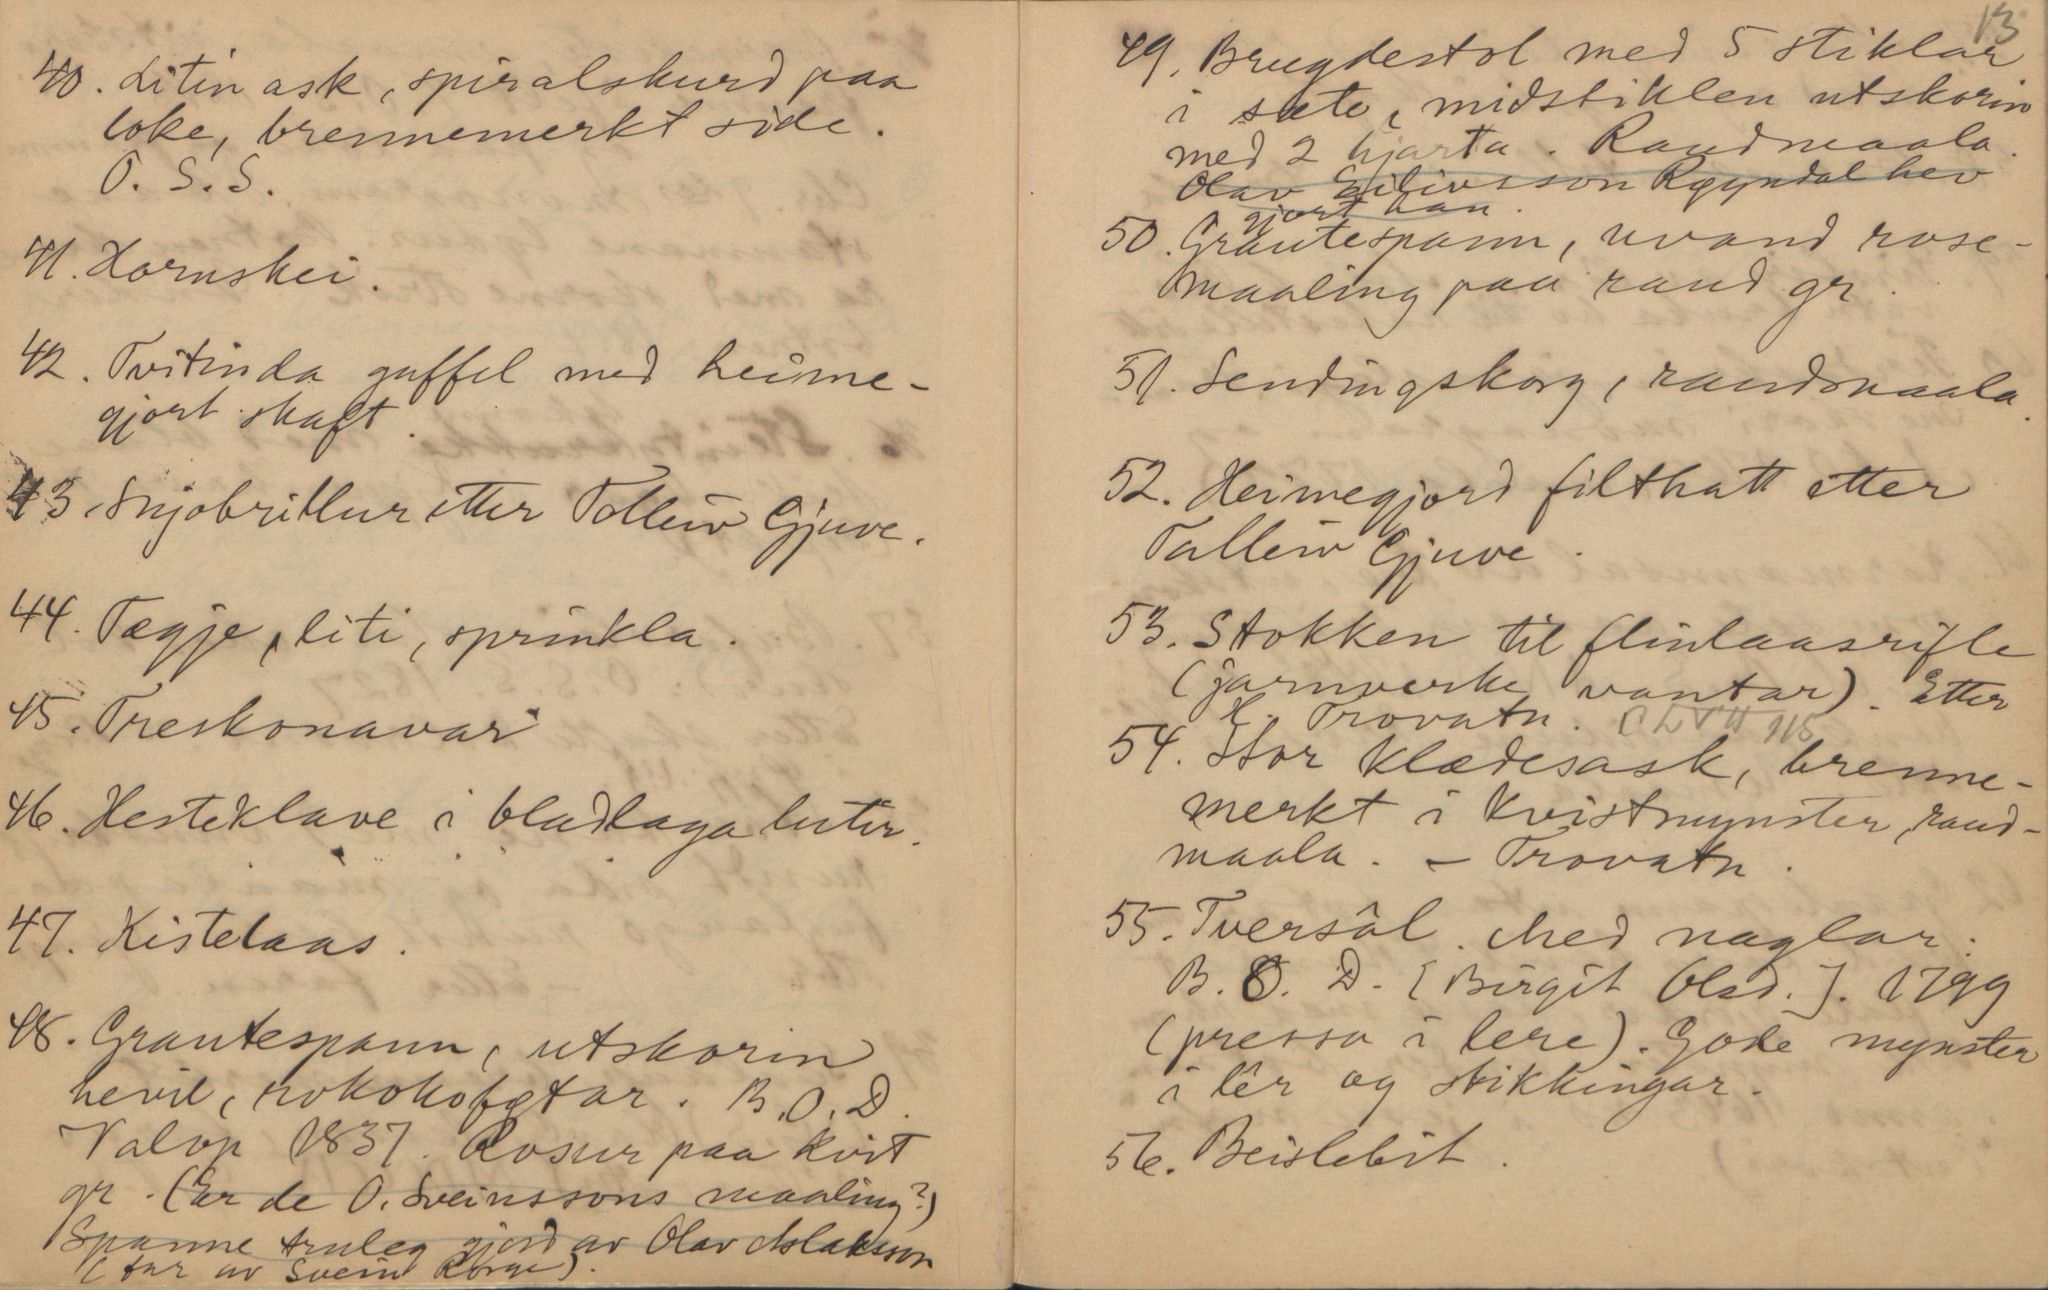 40. Litin ask, spiralskurd paa
loke, brennemerkt side.
O. S. S.
41. Hornskei.
42. Tvitinda gaffel med heime-
gjort skaft.
43. Snjobrillur etter Tolleiv Gjuve.
44. Tægje, liti, sprinkla.
45. Treskonavar
46. Hesteklave i bladlaga lutir.
47. Kistelaas.
48. Grautespann, utskorin
hevil, rokokoføtar. B.O.D.
Valop 1837. Rosur paa kvit
gr. (Er de O. Sveinssons maaling?)
Spanne truleg gjord av Olav Aslaksson
(far av Svein
13
49. Brugdestol med 5 stiklar
i sæte, midstiklen utskorin
med 2 hjarta. Raudmaala.
Olav Eilivsson Rgyndal hev
gjort han.
50. Grautespann, uvand rose-
maaling paa raud gr.
51. Sendingskorg, raudmaala.
52. Heimegjord filthatt etter
Talleiv Gjuve.
53. Stokken til flintlaasrifle
(jarnverke vantar). Etter
H. Trovatn.
54. Stor klædesask, brenne-
merkt i kvistmynster, raud-
maala. - Trovatn.
55. Tversâl. Med naglar.
B. O. D. [Birgit Olsd.]. 1799
(pressa i lere). Gode mynster
i lêr og stikkingar.
56. Beislebit.